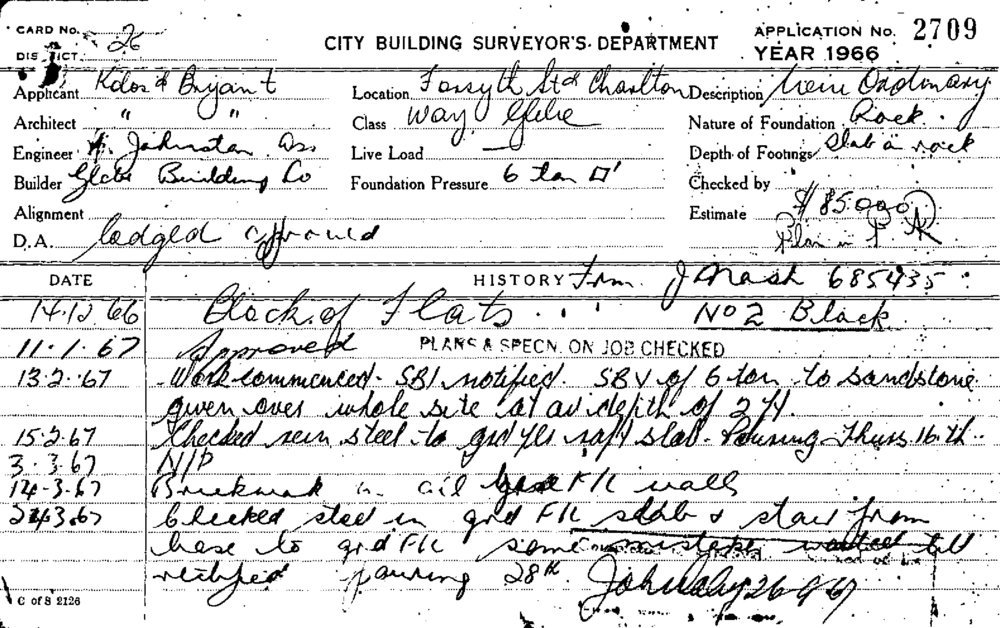 CARD No. 26 CITY BUILDING SURVEYOR'S DEPARTMENT APPLICATION No. 2709
DISTRICT YEAR 1966
Applicant Kdos & Bryant Location Forsyth St & Charlton Description New Ordinary
Architect " " Class Way Glebe Nature of Foundation Rock
Engineer H. Johnston Ass Live Load Depth of Footings Slab on rock
Builder Glebe Building Co Foundation Pressure 6 ton □' Checked by
Alignment Estimate $85000
D.A. lodged approved Plan in P.R
DATE HISTORY From J Nash 685435
14.12.66 Block of Flats No 2 Block
11.1.67 Approved PLANS & SPECN. ON JOB CHECKED
13.2.67 Work commenced - SBI notified. SBV of 6 ton to sandstone
given over whole site at av depth of 2 ft.
15.2.67 Checked rein steel to grd flr raft slab - Pouring Thurs 16th.
3.3.67 N/P
14-3.67 Brickwork in all Flr walls
22.3.67 Checked steel in grd Flr slab & stair from
base to grd Flr some mistakes till
rectified pouring 28th. 26-9-67
C of S 2126